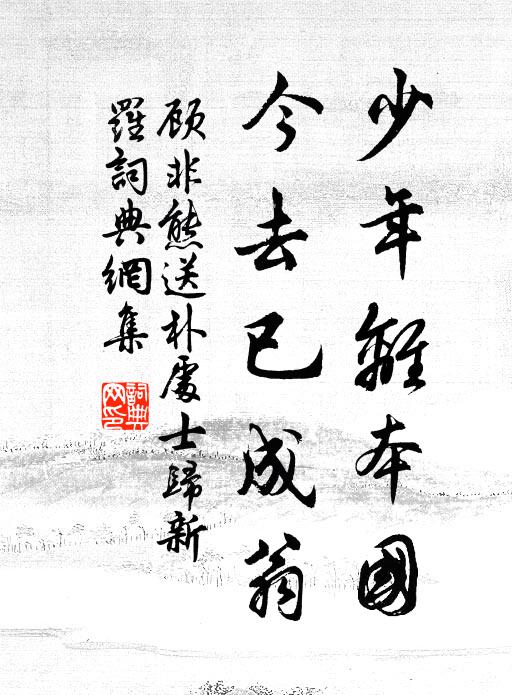 少年離本國
今去已成翁
顧非熊送朴處士歸新
羅詞典網集
詞典
网印